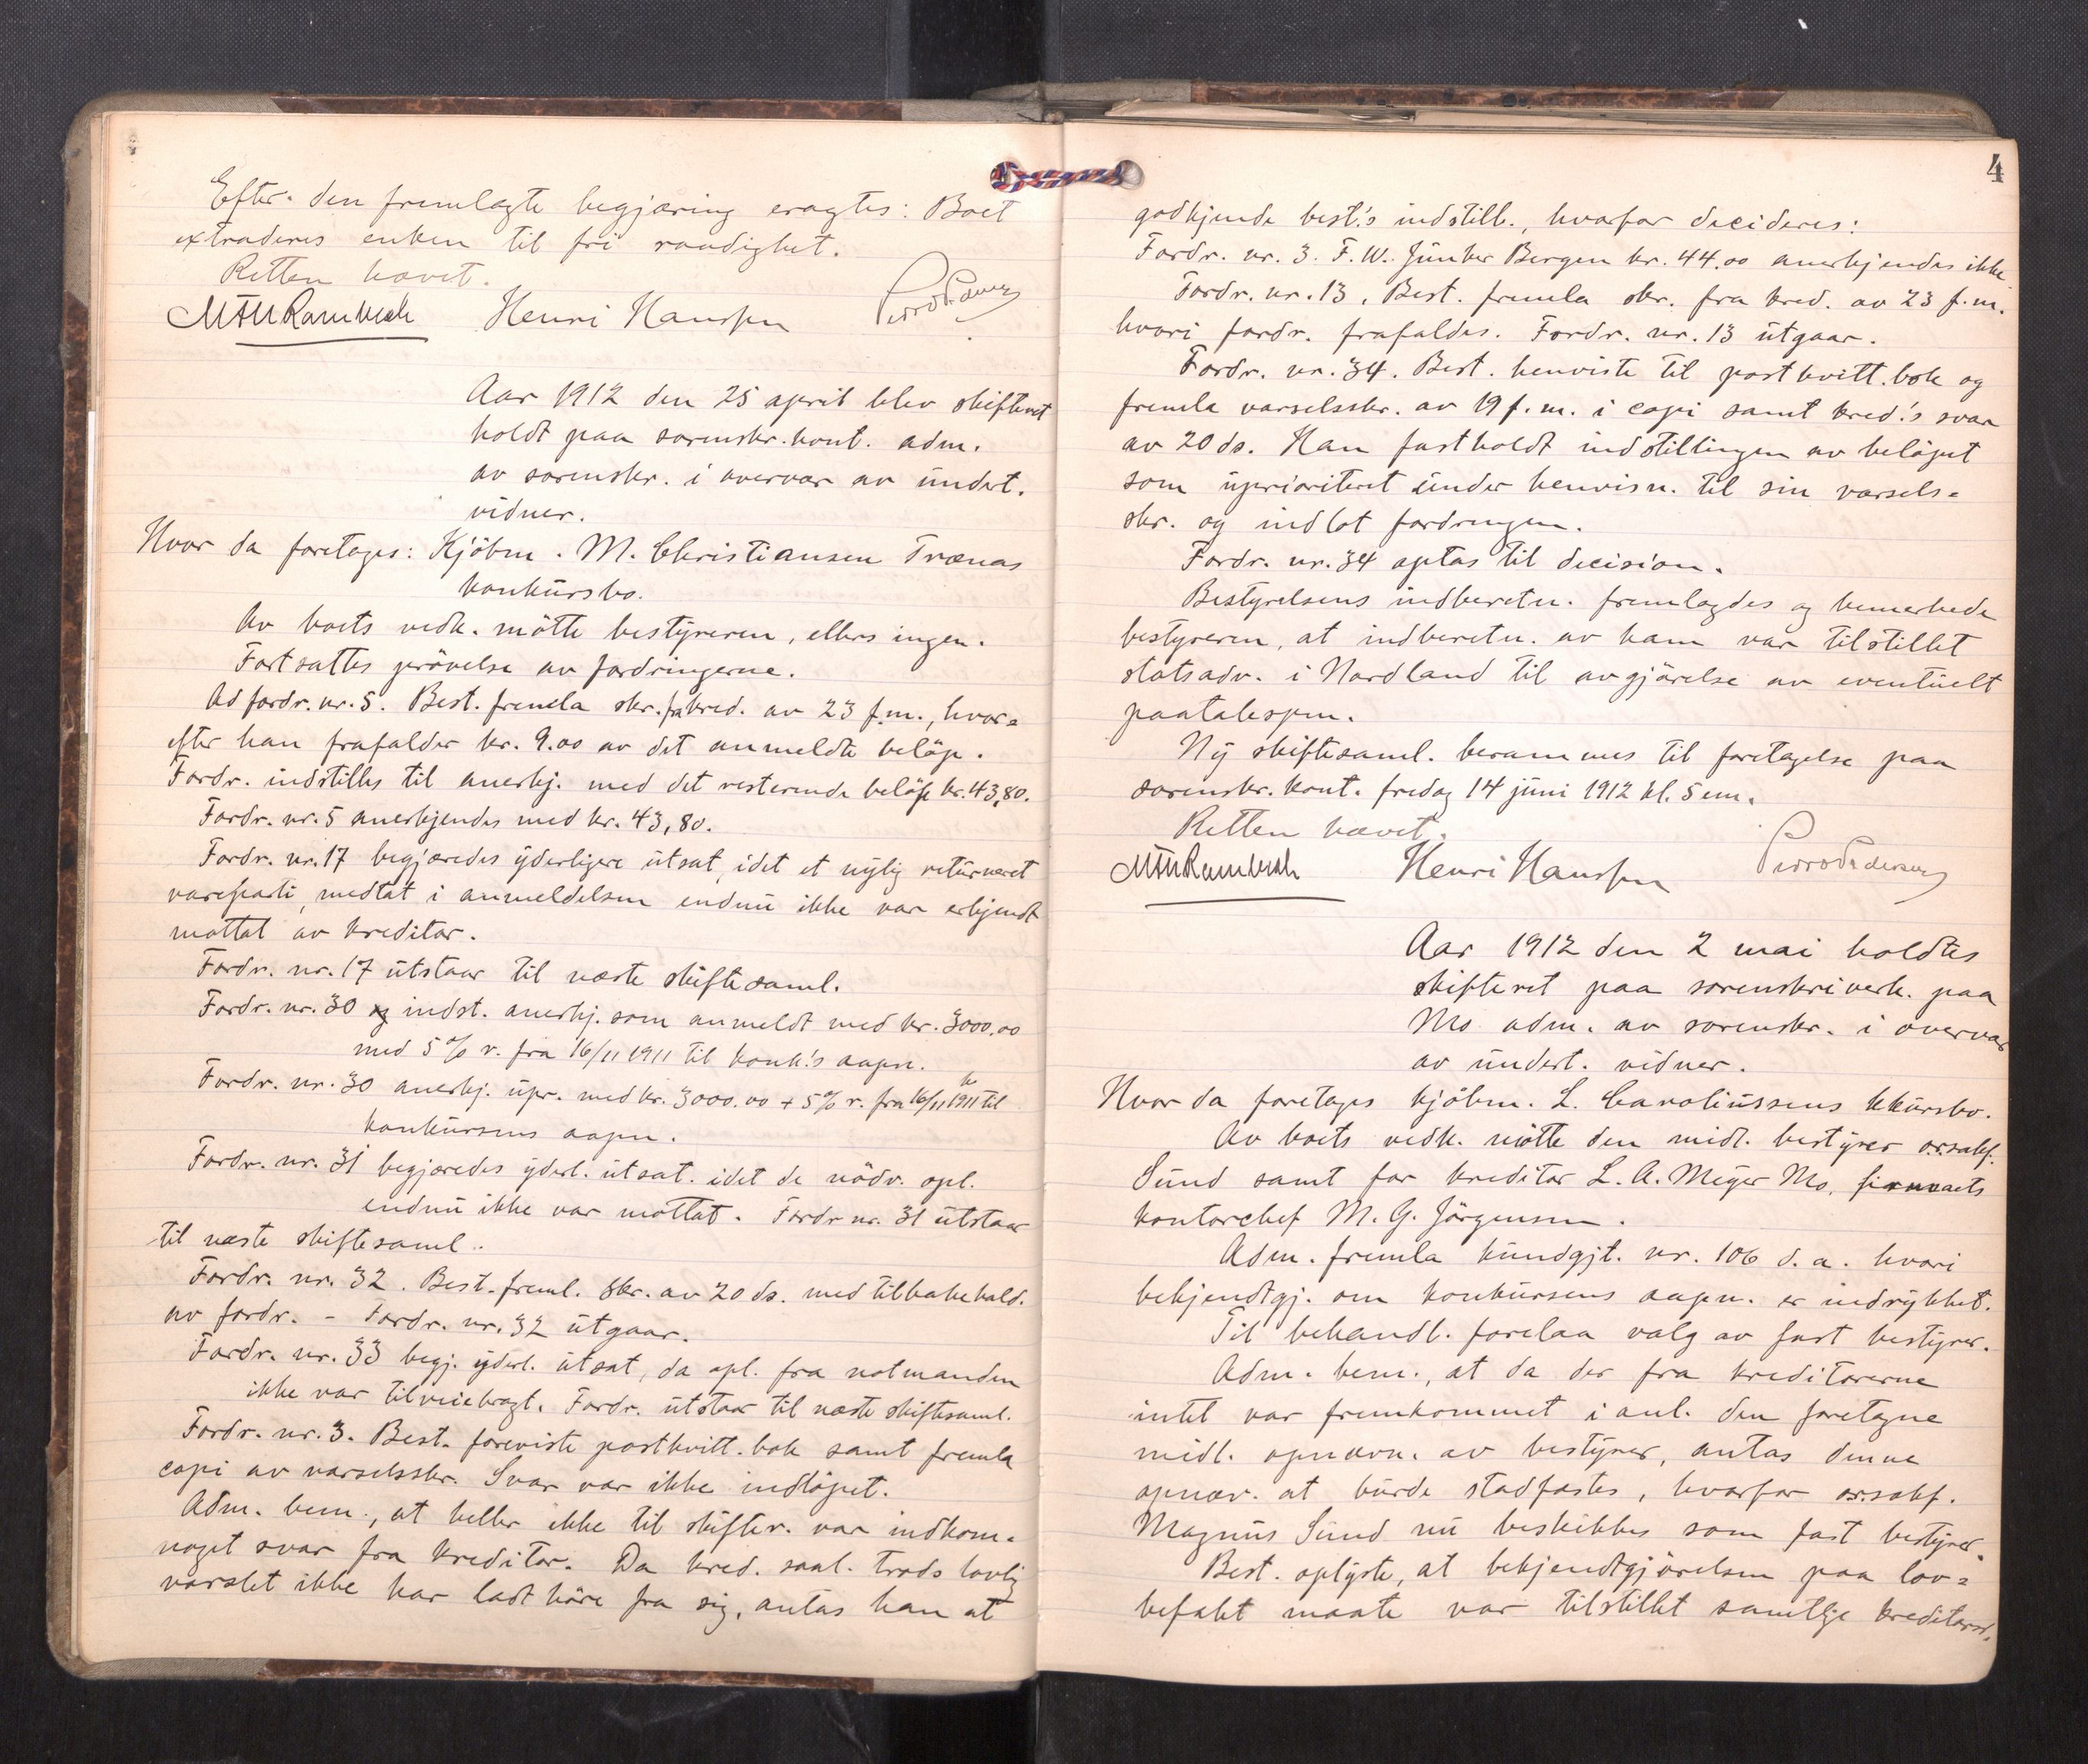 Efter den fremlagte begjæring eragtes: Boet
extraderes enken til fri raadighet.
Retten hævet.
Henri Hanssen
Aar 1912 den 25 april blev skifteret
holdt paa sorenskr. kont. adm.
av sorenskr. i overvær av undert.
vidner.
Hvor da foretages: Kjöbm. M. Christiansen Trænas
konkursbo.
Av boets vedk. mötte bestyreren, ellers ingen.
Fortsattes prövelse av fordringerne.
Ad fordr. nr. 5. Best. fremla skr. fra kred. av 23 f.m., hvor=
efter han frafalder kr. 9.00 av det anmeldte belöp.
Fordr. indstilles til anerkj. med det resterende belöp kr. 43,80.
Fordr. nr. 5 anerkjendes med kr. 43,80.
Fordr. nr. 17 begjæredes yderligere utsat, idet et nylig returneret
vareparti, medtat i anmeldelsen endnu ikke var erkjendt
mottat av kreditor.
Fordr. nr. 17 utstaar til næste skiftesaml.
Fordr. nr. 30 indst. anerkj. som anmeldt med kr. 3000.00
med 5 % r. fra 16/11 1911 til konk.'s aapn.
Fordr. nr. 30 anerkj. upr. med kr. 3000.00 + 5 % r. fra 16/11 1911 til
konkursens aapn.
Fordr. nr. 31 begjæredes yderl. utsat. idet de nödv. opl.
endnu ikke var mottat. Fordr nr. 31 utstaar
til næste skiftesaml..
Fordr. nr. 32. Best. freml. skr. av 20 ds. med tilbakekald.
av fordr. - Fordr. nr. 32 utgaar.
Fordr. nr. 33 begj. yderl. utsat, da opl. fra notmanden
ikke var tilveiebragt. Fordr. utstaar til næste skiftesaml.
Fordr. nr. 3. Best. foreviste postkvitt. bok samt fremla
copi av varselsskr. Svar var ikke indlöpet.
Adm. bem., at heller ikke til skifter. var indkom.
noget svar fra kreditor. Da kred. saal. trods lovlig
varslet ikke har ladt höre fra sig, antas han at
4
godkjende best.'s indstill., hvorfor decideres:
Fordr. nr. 3. F. W. Junker Bergen kr. 44.00 anerkjendes ikke.
Fordr. nr. 13. Best. fremla skr. fra kred. av 23 f.m.
hvori fordr. frafaldes. Fordr. nr. 13 utgaar.
Fordr. nr. 34. Best. henviste til postkvitt. bok og
fremla varselsskr. av 19 f.m. i copi samt kred.'s svar
av 20 ds. Han fastholdt indstillingen av belöpet
som uprioriteret under henvisn. til sin varsels=
skr. og indlot fordringen.
Fordr. nr. 34 optas til decision.
Bestyrelsens indberetn. fremlagdes og bemerkede
bestyreren, at indberetn. av ham var tilstillet
statsadv. i Nordland til avgjörelse av eventuelt
paatalespm.
Ny skiftesaml. berammes til foretagelse paa
sorenskr. kont. fredag 14 juni 1912 kl. 5 em.
Retten hævet.
Henri Hanssen
Aar 1912 den 2 mai holdtes
skifteret paa sorenskriverk. paa
Mo adm. av sorenskr. i overvær
av undert. vidner.
Hvor da foretages kjöbm. L. Caroliussens kkursbo.
Av boets vedk. mötte den midl. bestyrer o.r.sakf.
Sund samt for kreditor L. A. Meyer Mo, firmaets
kontorchef M. G. Jörgensen.
Adm. fremla kundgjt. nr. 106 d. a. hvori
bekjendtgj. om konkursens aapn. er indrykket.
Til behandl. forelaa valg av fast bestyrer.
Adm. bem., at da der fra kreditorerne
intet var fremkommet i anl. den foretagne
midl. opnævn. av bestyrer, antas denne
opnæv. at burde stadfæstes, hvorfor o.r.sakf.
Magnus Sund nu beskikkes som fast bestyrer.
Best. oplyste, at bekjendtgjörelsen paa lov=
befalet maate var tilstillet samtlge kreditorer.